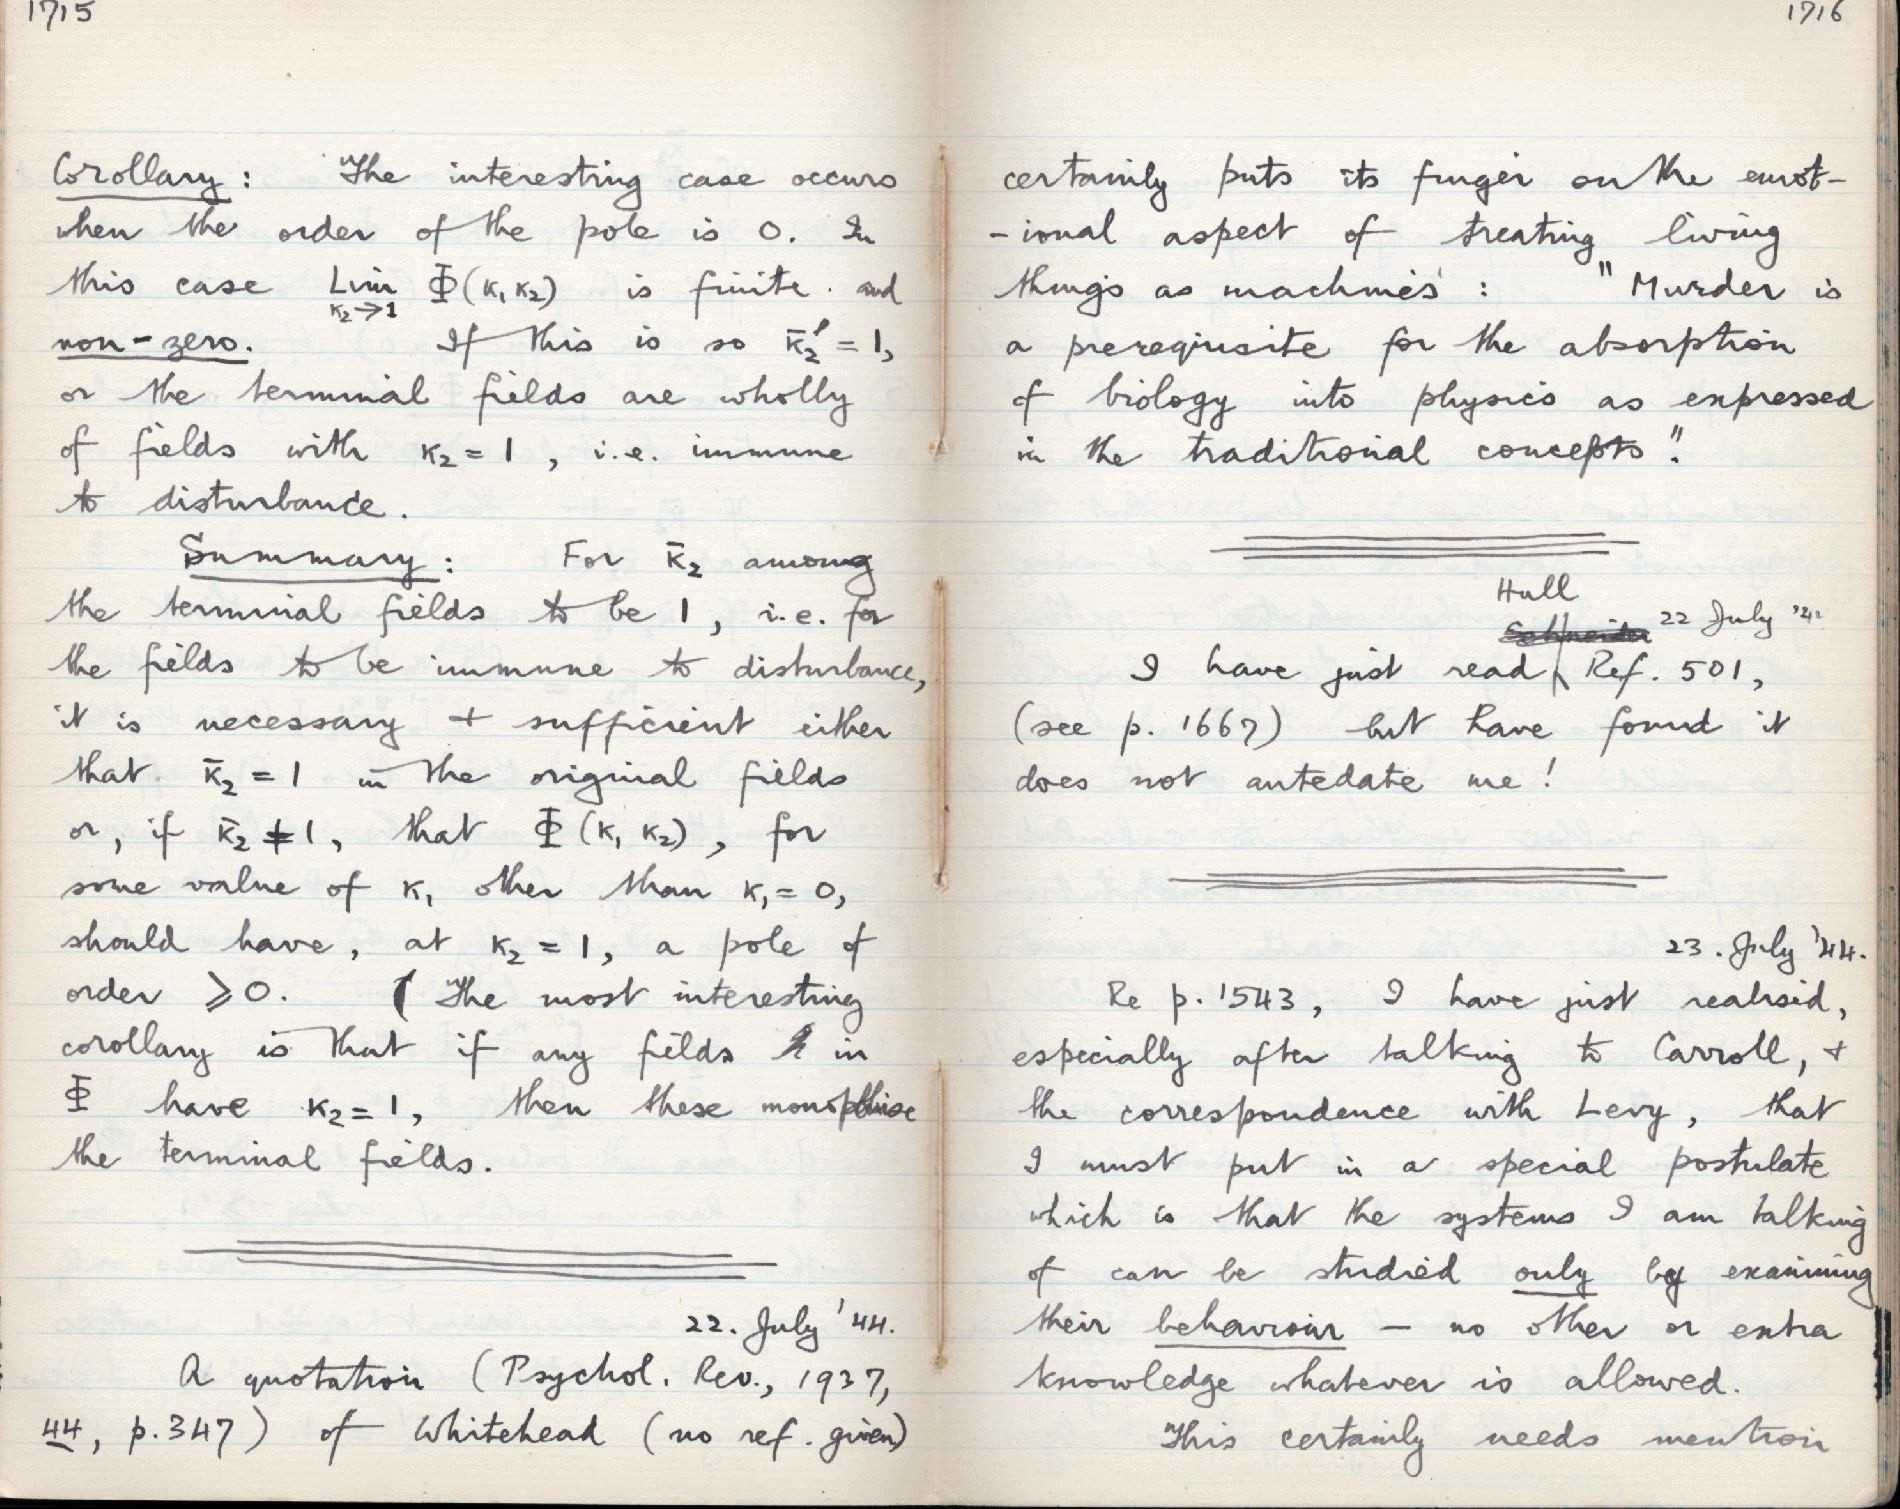 1715
Corollary: The interesting case occurs
when the order of the pole is 0. In
this case Lim Φ(κ₁ κ₂) is finite and
κ₂→1
non-zero. If this is so κ̄₂' = 1,
or the terminal fields are wholly
of fields with κ₂ = 1, i.e. immune
to disturbance.
Summary: For κ̄₂ among
the terminal fields to be 1, i.e. for
the fields to be immune to disturbance,
it is necessary + sufficient either
that κ̄₂ = 1 in the original fields
or, if κ̄₂ ≠ 1, that Φ(κ₁ κ₂), for
some value of κ₁ other than κ₁ = 0,
should have, at κ₂ = 1, a pole of
order ⩾ 0. (The most interesting
corollary is that if any fields in
Φ have κ₂ = 1, then these monopolise
the terminal fields.
22. July '44.
A quotation (Psychol. Rev., 1937,
44, p. 347) of Whitehead (no ref. given)
1716
certainly puts its finger on the emot-
-ional aspect of treating living
things as machines: "Murder is
a prerequisite for the absorption
of biology into physics as expressed
in the traditional concepts".
Hull
Schneider 22 July '44
I have just read Ref. 501,
(see p. 1667) but have found it
does not antedate me!
23. July '44.
Re p. 1543, I have just realised,
especially after talking to Carroll, +
the correspondence with Levy, that
I must put in a special postulate
which is that the systems I am talking
of can be studied only by examining
their behaviour — no other or extra
knowledge whatever is allowed.
This certainly needs mention